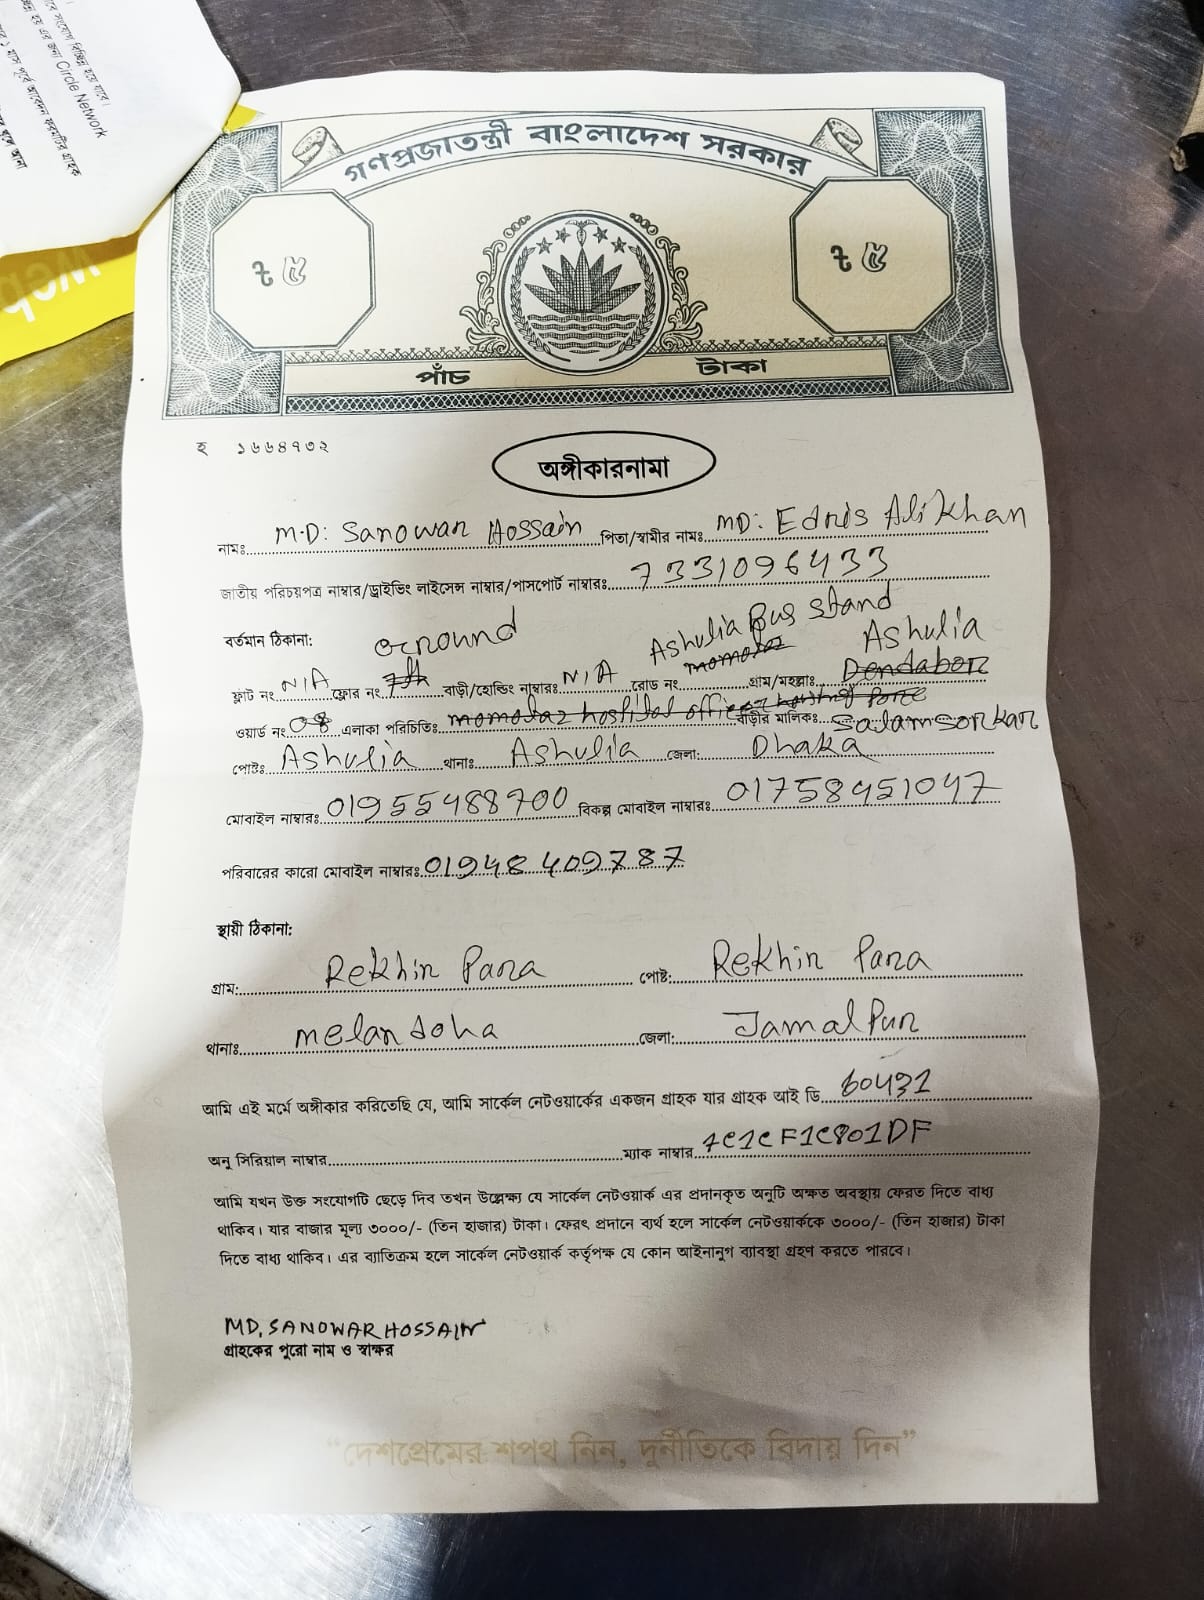 গণপ্রজাতন্ত্রী বাংলাদেশ সরকার
৳ ৫ ৳ ৫
পাঁচ টাকা
হ ১৬৬৪৭৩২
অঙ্গীকারনামা
নামঃ M.D: Sanowar Hossain পিতা/স্বামীর নামঃ MD: Edris Ali Khan
জাতীয় পরিচয়পত্র নাম্বার/ড্রাইভিং লাইসেন্স নাম্বার/পাসপোর্ট নাম্বারঃ 7331096433
বর্তমান ঠিকানা: Ground Ashulia Bus Stand Ashulia
ফ্লাট নং N/A ফ্লোর নং 7th বাড়ী/হোল্ডিং নাম্বারঃ N/A রোড নং momotaz গ্রাম/মহল্লাঃ Dendabor
ওয়ার্ড নং 08 এলাকা পরিচিতিঃ momotaz hospital officer বাড়ীর মালিকঃ Salam Sorkar
পোষ্টঃ Ashulia থানাঃ Ashulia জেলা: Dhaka
মোবাইল নাম্বারঃ 01955488700 বিকল্প মোবাইল নাম্বারঃ 01758951047
পরিবারের কারো মোবাইল নাম্বারঃ 01948409787
স্থায়ী ঠিকানা:
গ্রাম: Rekhin Para পোষ্ট: Rekhin Para
থানাঃ melandoha জেলা: Jamalpur
আমি এই মর্মে অঙ্গীকার করিতেছি যে, আমি সার্কেল নেটওয়ার্কের একজন গ্রাহক যার গ্রাহক আই ডি 60431
অনু সিরিয়াল নাম্বার ম্যাক নাম্বার 7C1CF1C801DF
আমি যখন উক্ত সংযোগটি ছেড়ে দিব তখন উল্লেক্ষ্য যে সার্কেল নেটওয়ার্ক এর প্রদানকৃত অনুটি অক্ষত অবস্থায় ফেরত দিতে বাধ্য
থাকিব। যার বাজার মূল্য ৩০০০/- (তিন হাজার) টাকা। ফেরৎ প্রদানে ব্যর্থ হলে সার্কেল নেটওয়ার্ককে ৩০০০/- (তিন হাজার) টাকা
দিতে বাধ্য থাকিব। এর ব্যাতিক্রম হলে সার্কেল নেটওয়ার্ক কর্তৃপক্ষ যে কোন আইনানুগ ব্যাবস্থা গ্রহণ করতে পারবে।
MD. SANOWAR HOSSAIN
গ্রাহকের পুরো নাম ও স্বাক্ষর
“দেশপ্রেমের শপথ নিন, দুর্নীতিকে বিদায় দিন”
Circle Network
web